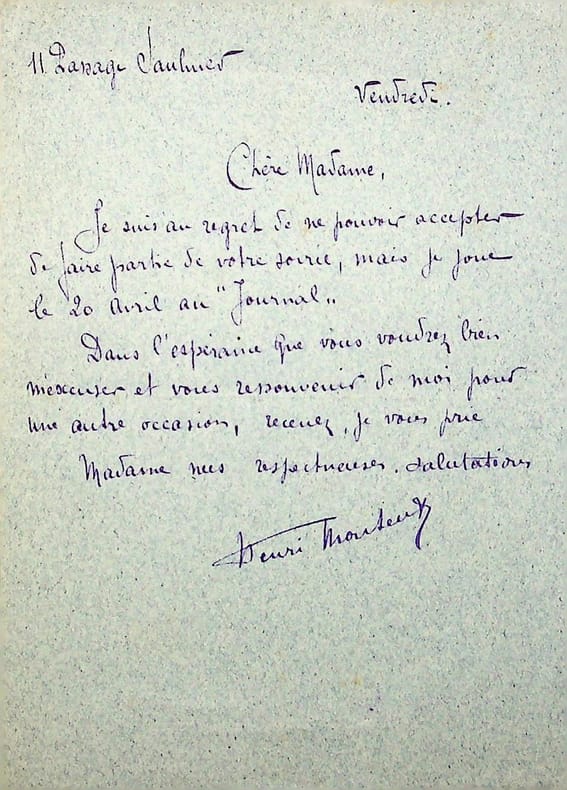 11 Passage Saulnier
Vendredi.
Chère Madame,
Je suis au regret de ne pouvoir accepter
de faire partie de votre soirée, mais je joue
le 20 avril au "Journal".
Dans l'espérance que vous voudrez bien
m'excuser et vous ressouvenir de moi pour
une autre occasion, recevez, je vous prie
Madame mes respectueuses salutations
Henri Monteux